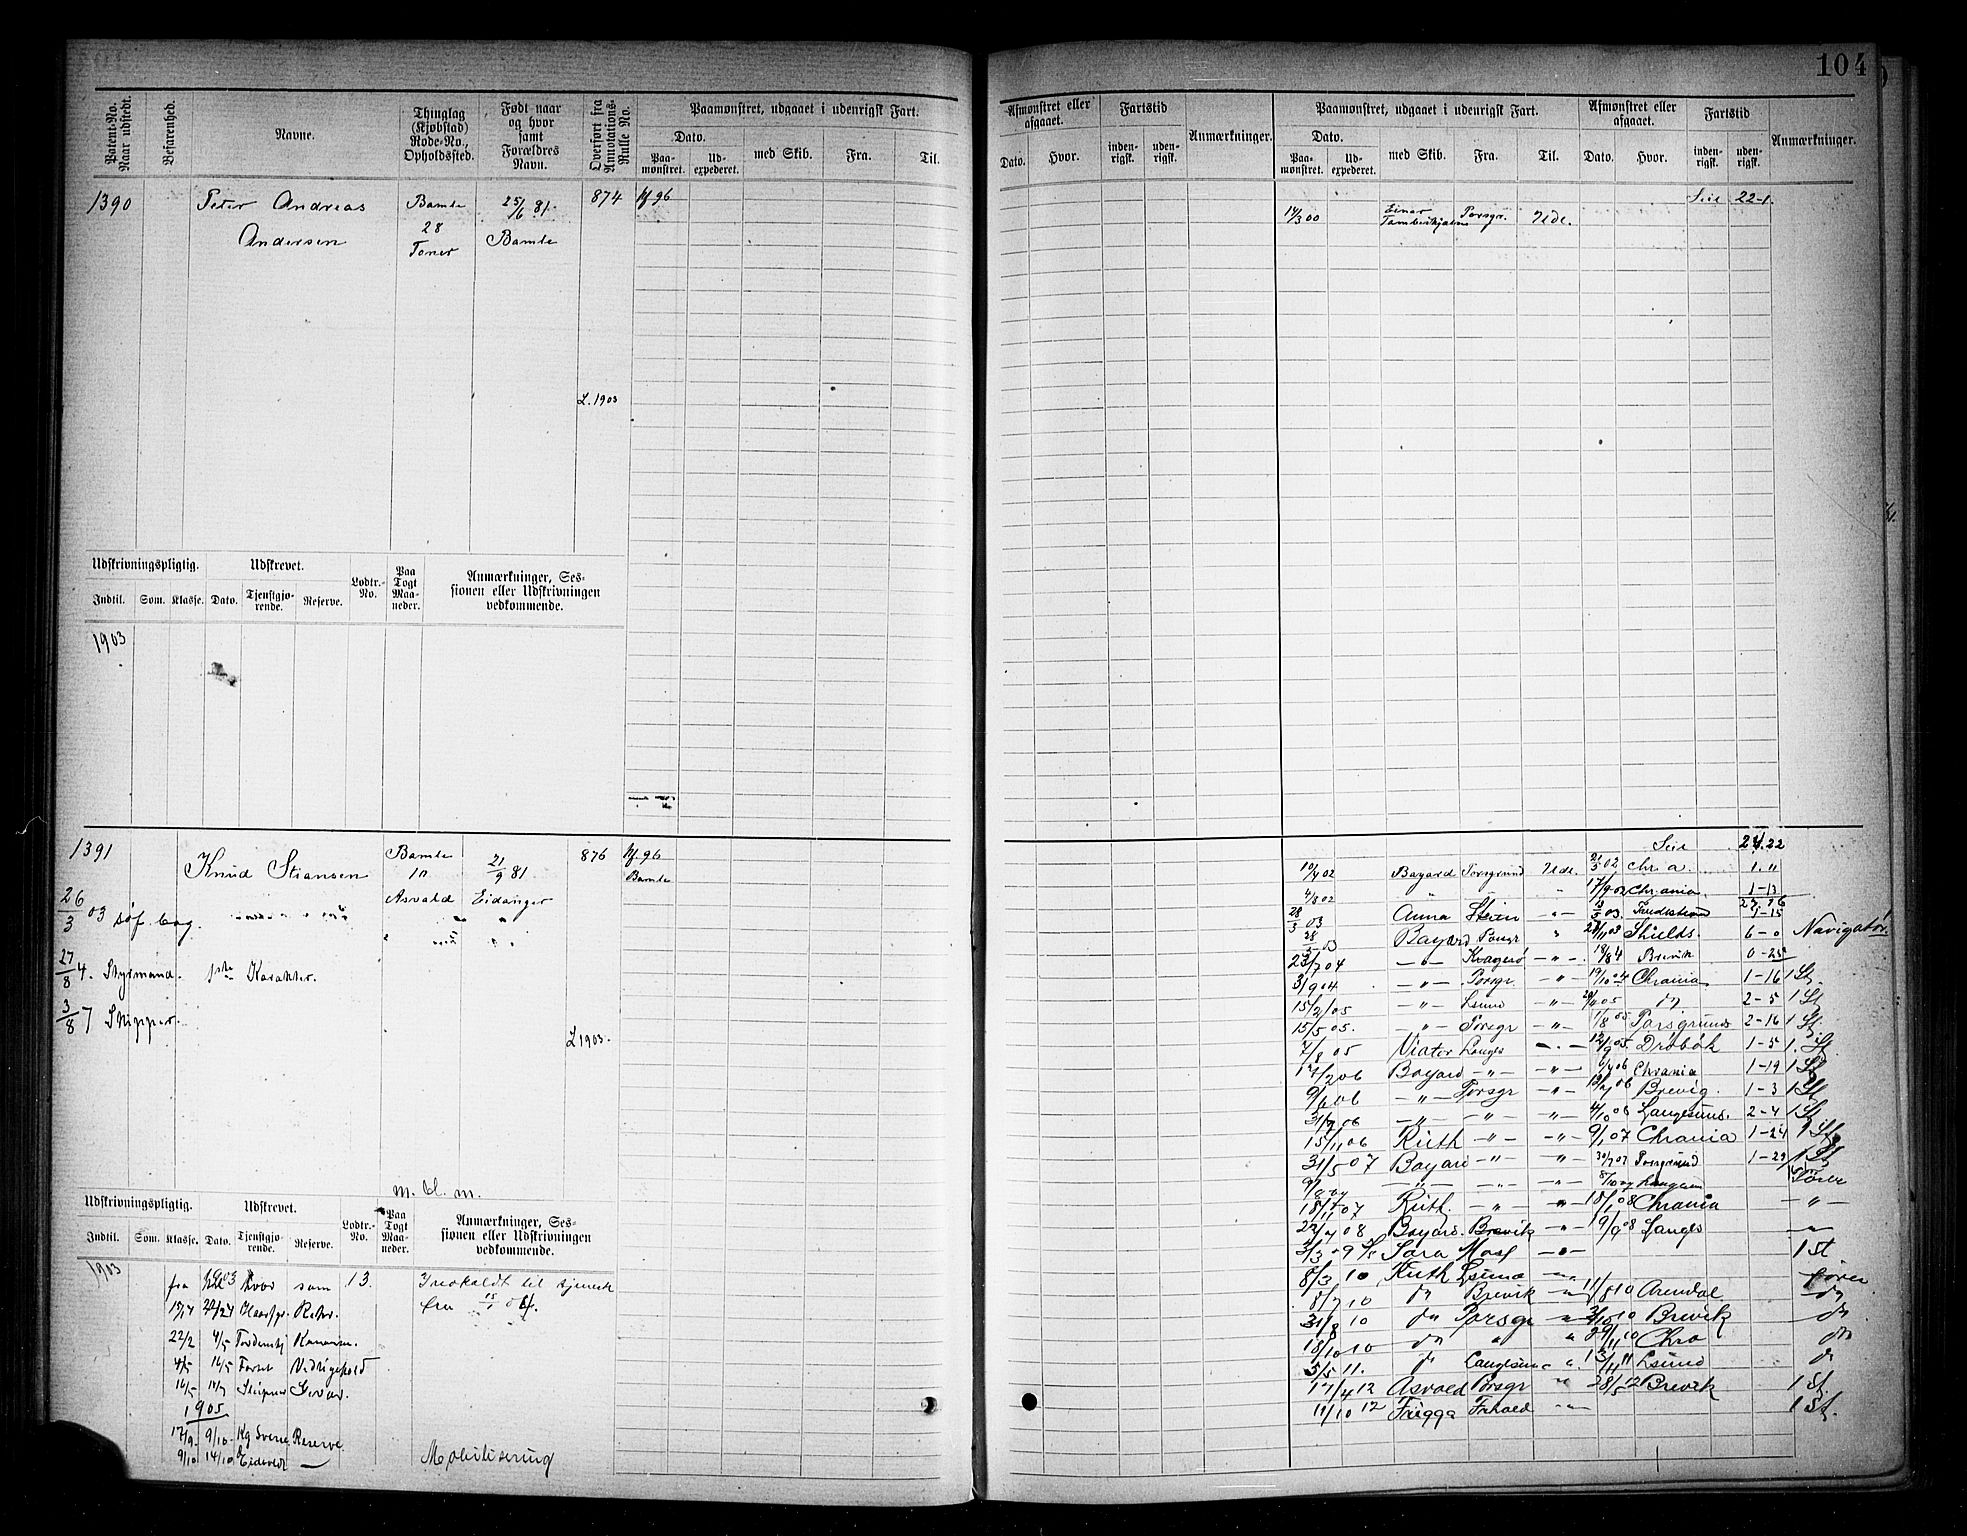 104
Patent-No. Naar udstedt.
Befarenhed.
Navne.
Thinglag (Kjøbstad) Rode-No., Opholdssted.
Født naar og hvor samt Forældres Navn.
Overført fra Annotations-Rulle No.
Paamønstret, udgaaet i udenrigsk Fart.
Dato.
Paamønstret.
Udexpederet.
med Skib.
Fra.
Til.
Afmønstret eller afgaaet.
Dato.
Hvor.
Fartstid
indenrigsk.
udenrigsk.
Anmærkninger.
Paamønstret, udgaaet i udenrigsk Fart.
Dato.
Paamønstret.
Udexpederet.
med Skib.
Fra.
Til.
Afmønstret eller afgaaet.
Dato.
Hvor.
Fartstid
indenrigsk.
udenrigsk.
Anmærkninger.
1390
Peter Andreas
Andersen
Bamle
28
Toner
25/6 81.
Bamle
874
96
L. 1903
Seil 22-1.
14/3 00 Einar Tamberskjelver Porsgr. Ude.
Udskrivningspligtig.
Udskrevet.
Lodtr.-No.
Paa Togt Maaneder.
Anmærkninger, Sessionen eller Udskrivningen vedkommende.
Indtil.
Som.
Klasse.
Dato.
Tjenstgjørende.
Reserve.
1903
1391
Knud Stiansen
Bamle
10
Asvald
21/9 81
Eidanger
876
96
Bamle
26/3 03 søf. bog.
27/8 4. Styrmand. 1ste Karakter.
3/8 7 Skipper.
L 1903.
Seil
10/4 02 Bayard Porsgrund Ude. 21/5 02 Chr.a 1. "
4/8 02 " " 17/9 02 Chrania 1-13
28/3 03 Anna Skien -"- 03. 1-15
03 Bayard Porsgr " Shields. 6-0 Navigatør.
23/7 04 -"- Kragerø -"- 18/8 4 Brevik 0-25
3/9 04 -"- Porsgr. -"- 19/10 04 Chrania 1-16 1 St.
15/2 05 -"- Lsund -"- 05 do 2-5 1 St
15/5 05. -"- Porsgr -"- 1/8 05 Porsgrund 2-16 1 St.
7/8 05 Viator Langs -"- 12/9 05 Drøbak 1-5 1. St
06 Bayard -"- -"- 06 Chrania 1-19 1 St
9/6 06 -"- Porsgr -"- 06 Brevig. 1-3 1 St
31/7 06 -"- -"- -"- 4/10 06 Langesund. 2-4 1 St
15/11 06 Ruth -"- -"- 9/1 07 Chrania 1-24 1 St
31/5 07 Bayard -"- -"- 30/7 07 Porsgrund 1-29 1 St
-"- -"- -"- Langesun Fører
18/11 07 Ruth. -"- -"- 18/1 08 Chrania -"-
22/7 08 Bayard. Brevik -"- 19/9 08 Langs -"-
3/3 09 Sara Moss -"- 1 St
8/3 10 Ruth Lsund -"- fører
8/7 10 do Brevik -"- 11/8 10 Arendal do
31/8 10 do Porsgr -"- 10 Brevik do
18/10 10 do " " 29/11 10 Chra do
5/5 11. do Langesun " 13/11 11 Lsund do
17/4 12 Asvald Porsgr " 28/5 12 Brevik 1 St.
11/10 12 Frigga -"- 1 St.
Udskrivningspligtig.
Udskrevet.
Lodtr.-No.
Paa Togt Maaneder.
Anmærkninger, Sessionen eller Udskrivningen vedkommende.
Indtil.
Som.
Klasse.
Dato.
Tjenstgjørende.
Reserve.
1903
fra til hvor som 13.
Indkaldt til tjeneste
fra 15/1 04.
22/2 4/5 Tordenskj Kanonm.
4/5 16/5
1905
17/9. 9/10. Kg Sverre Reserve
9/10 14/10 Eidsvold —
Mobilisering